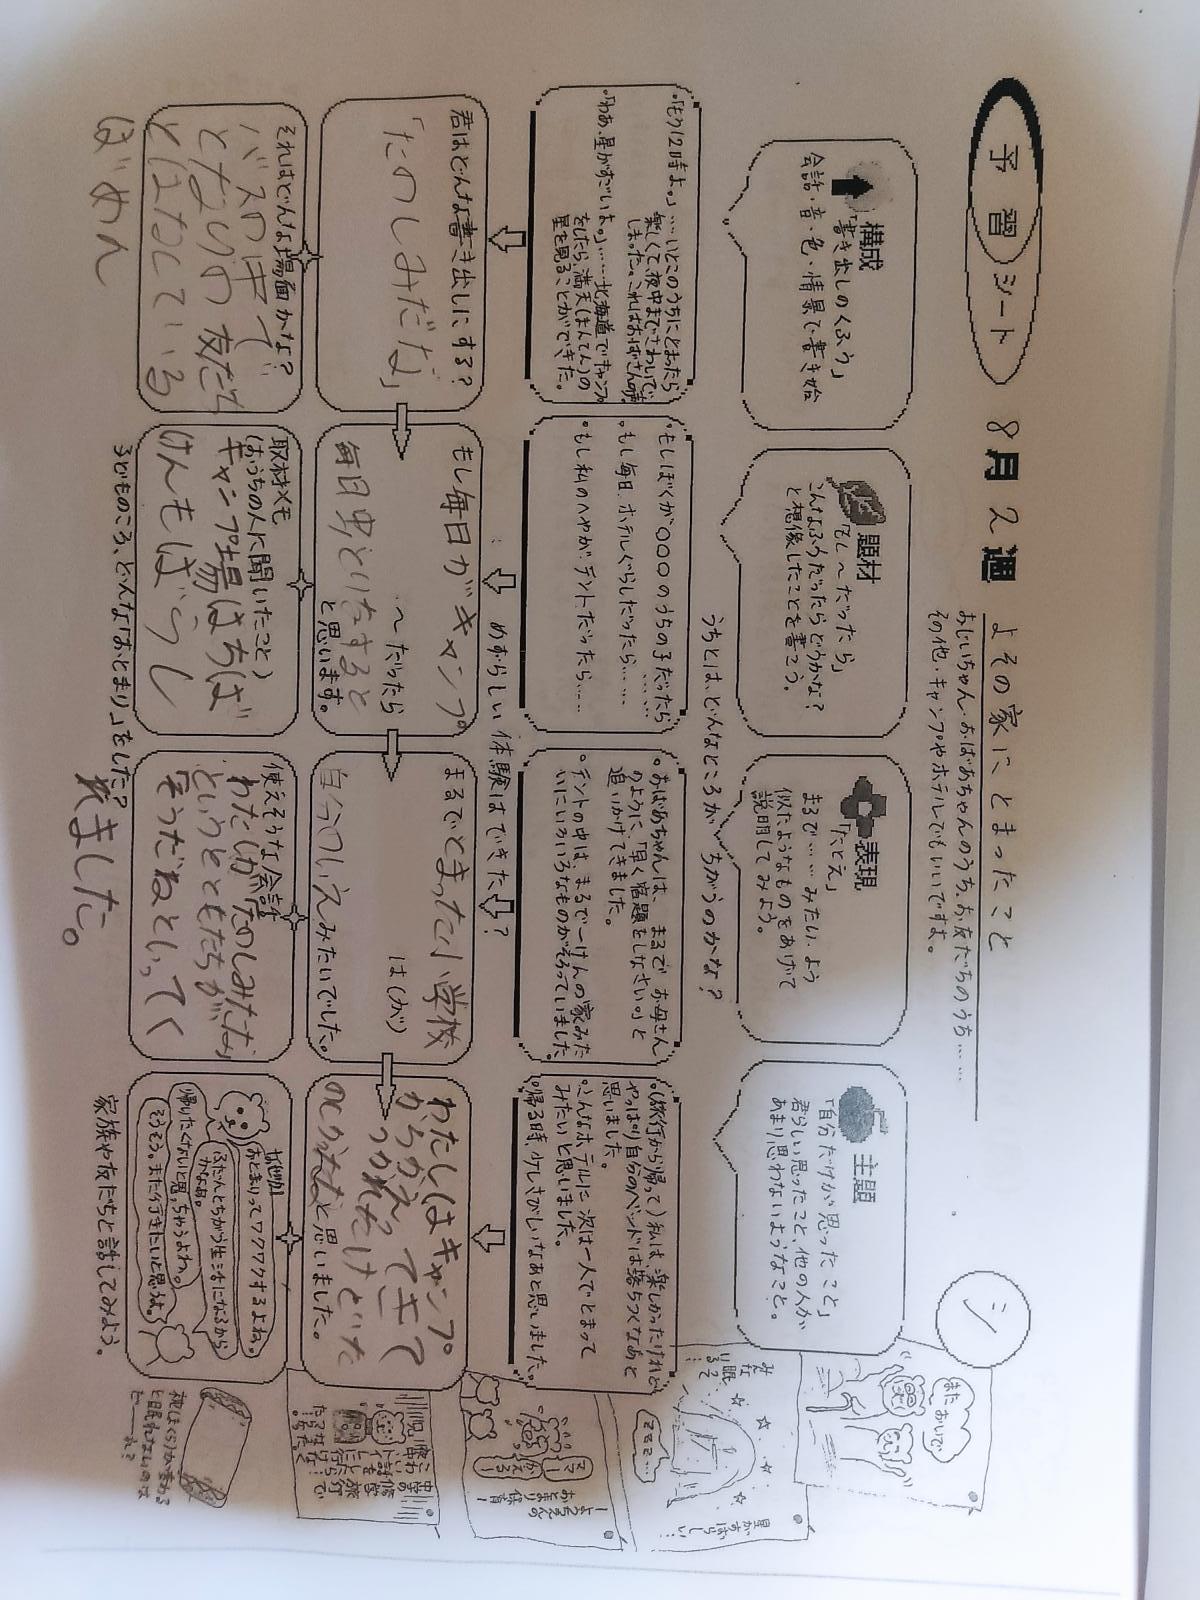 予習シート 8月2週
よその家にとまったこと
おじいちゃん、おばあちゃんのうち、お友だちのうち……
その他…キャンプやホテルでもいいですよ。
シ
構成
「書き出しのくふう」
会話・音・色・情景で書き始
題材
「もし〜だったら」
こんなふうだったらどうかな?
と想像したことを書こう。
表現
「たとえ」
まるで……みたい、よう
似たようなものをあげて
説明してみよう。
主題
「自分だけが思ったこと」
君らしい思ったこと、他の人が
あまり思わないようなこと。
うちとは、どんなところが、ちがうのかな?
・「もう12時よ。」……いとこのうちにとまったら
楽しくて、夜中までさわいで
しまった。これはおばさんの声
・「わあ、星がすごいよ。」……北海道でキャンプ
をしたら、満天(まんてん)の
星を見ることができた。
・もしぼくが〇〇〇のうちの子だったら……
・もし毎日、ホテルぐらしだったら……
・もし私のへやが、テントだったら……
・おばあちゃんは、まるでお母さん
のように、「早く宿題をしなさい。」と
追いかけてきました。
・テントの中は、まるで一けんの家みた
いにいろいろなものがそろっていました。
・(旅行から帰って)私は、楽しかったけれど
やっぱり自分のベッドは落ちつくなあと
思いました。
・こんなホテルに次は一人でとまって
みたいと思いました。
・帰る時、少しさびしいなあと思いました。
めずらしい体験はできた?
君はどんな書き出しにする?
「たのしみだな」
もし毎日がキャンプ
〜だったら
毎日虫とりをすると
と思います。
まるでとまった小学校
は(が)
自分のいえみたいでした。
わたしはキャンプ
からかえってきて
つかれたけどいた
のしかったなと思いました。
それはどんな場面かな?
バスの中で
となりの友だち
とはなしている
ばめん
取材メモ
(おうちの人に聞いたこと)
キャンプ場はちば
けんもばらし
子どものころ、どんな「おとまり」をした?
使えそうな会話
わたしが「たのしみだな」
というとともだちが
そうだねといってく
れました。
おとまりってワクワクするよね。
ふだんとちがう生活になるから
かなあ。
帰りたくないと思っちゃうよね。
そうそう。また行きたいと思うよ。
家族や友だちと話してみよう。
また
おいで
みんな
眠ってる…
zzzz…
星が
すばらしい…
ママー
かえろー
ようちえんの
おとまり保育ー